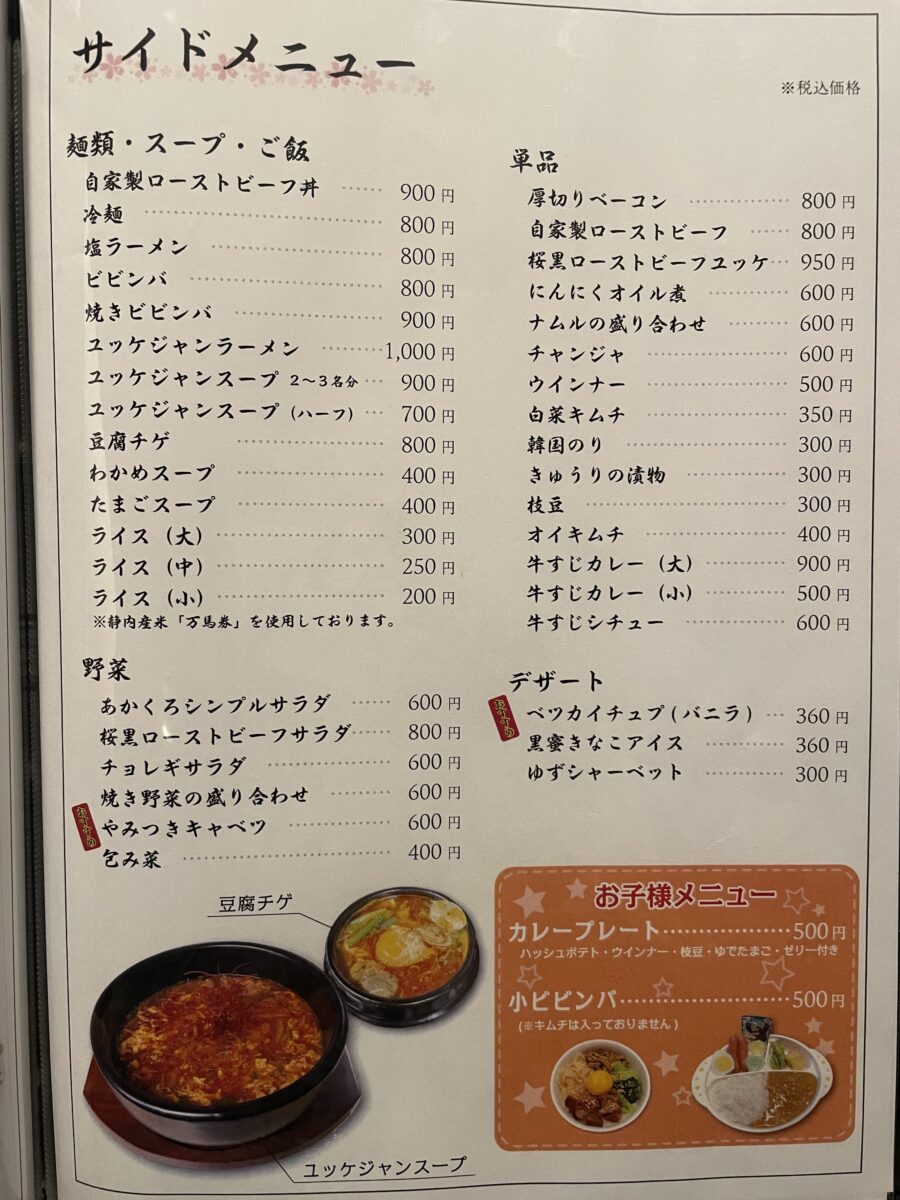 サイドメニュー
※税込価格
麺類・スープ・ご飯
自家製ローストビーフ丼 …… 900円
冷麺 …… 800円
塩ラーメン …… 800円
ビビンバ …… 800円
焼きビビンバ …… 900円
ユッケジャンラーメン …… 1,000円
ユッケジャンスープ 2〜3名分 … 900円
ユッケジャンスープ (ハーフ) … 700円
豆腐チゲ …… 800円
わかめスープ …… 400円
たまごスープ …… 400円
ライス (大) …… 300円
ライス (中) …… 250円
ライス (小) …… 200円
※静内産米「万馬券」を使用しております。
野菜
あかくろシンプルサラダ …… 600円
桜黒ローストビーフサラダ …… 800円
チョレギサラダ …… 600円
焼き野菜の盛り合わせ …… 600円
おすすめ
やみつきキャベツ …… 600円
包み菜 …… 400円
単品
厚切りベーコン …… 800円
自家製ローストビーフ …… 800円
桜黒ローストビーフユッケ … 950円
にんにくオイル煮 …… 600円
ナムルの盛り合わせ …… 600円
チャンジャ …… 600円
ウインナー …… 500円
白菜キムチ …… 350円
韓国のり …… 300円
きゅうりの漬物 …… 300円
枝豆 …… 300円
オイキムチ …… 400円
牛すじカレー (大) …… 900円
牛すじカレー (小) …… 500円
牛すじシチュー …… 600円
デザート
おすすめ
ベツカイチュプ (バニラ) … 360円
黒蜜きなこアイス …… 360円
ゆずシャーベット …… 300円
豆腐チゲ
ユッケジャンスープ
お子様メニュー
カレープレート …… 500円
ハッシュポテト・ウインナー・枝豆・ゆでたまご・ゼリー付き
小ビビンバ …… 500円
(※キムチは入っておりません)